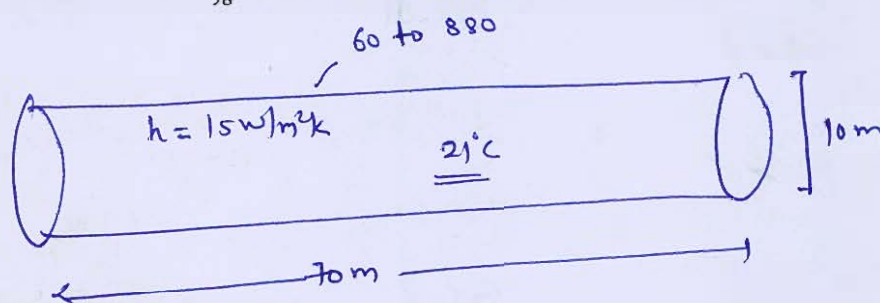 60 to 880
h = 15 w/m²k
21°C
10m
70m